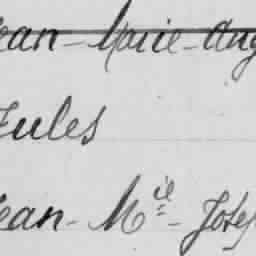 ean-Marie-Aug
Jules
ean-M^ie-Josep